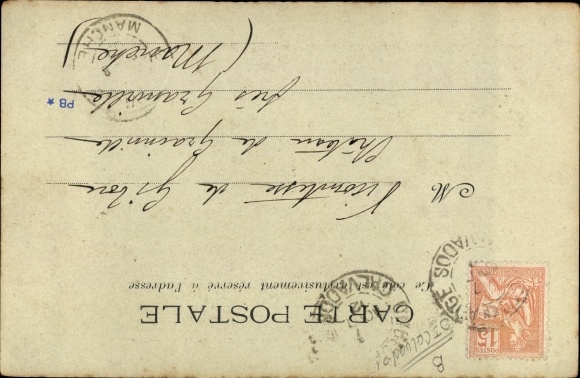 CARTE POSTALE
Ce côté est exclusivement réservé à l'adresse
M Vicomtesse de Gibon
Château de Grainville
près Granville
(Manche)
MANCHE
PB ★
CALVADOS
15
POSTES
B